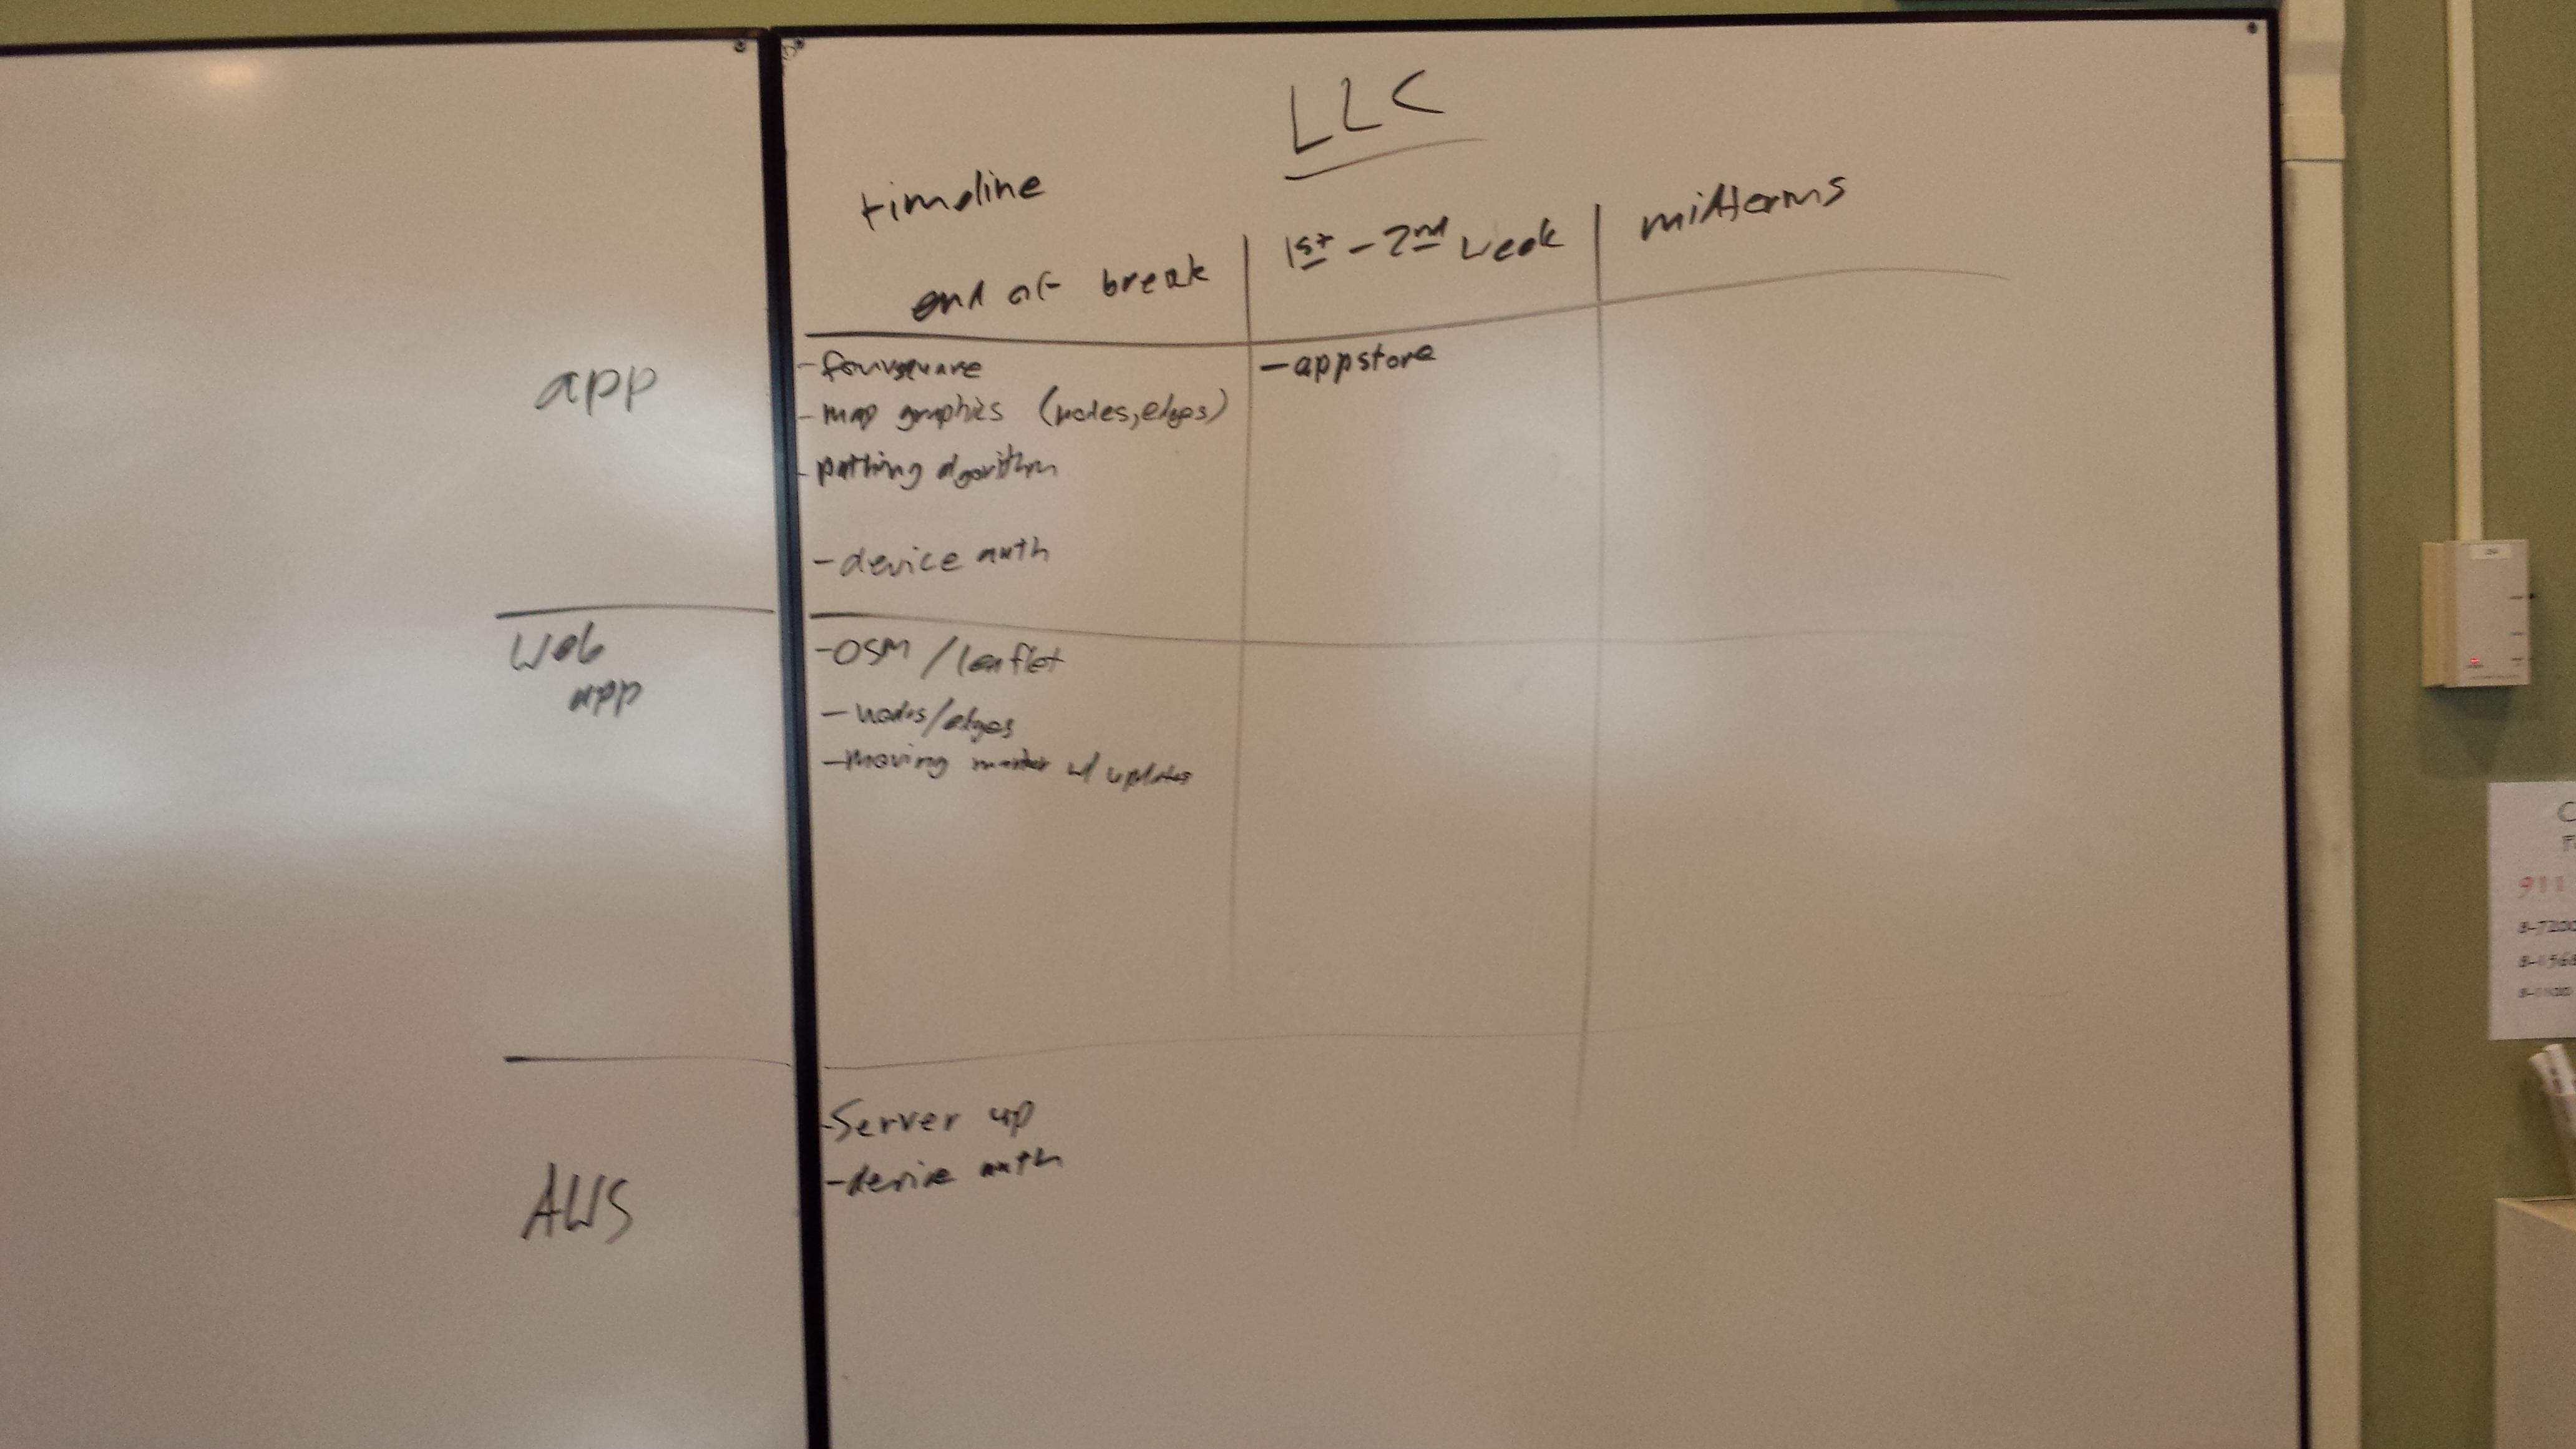 LLC
timeline
end of break
1st - 2nd week
midterms
app
- foursquare
- map graphics (nodes, edges)
- pathing algorithm
- device auth
- appstore
web
app
- OSM / leaflet
- nodes/edges
- moving marker w/ updates
AWS
- Server up
- device auth
911